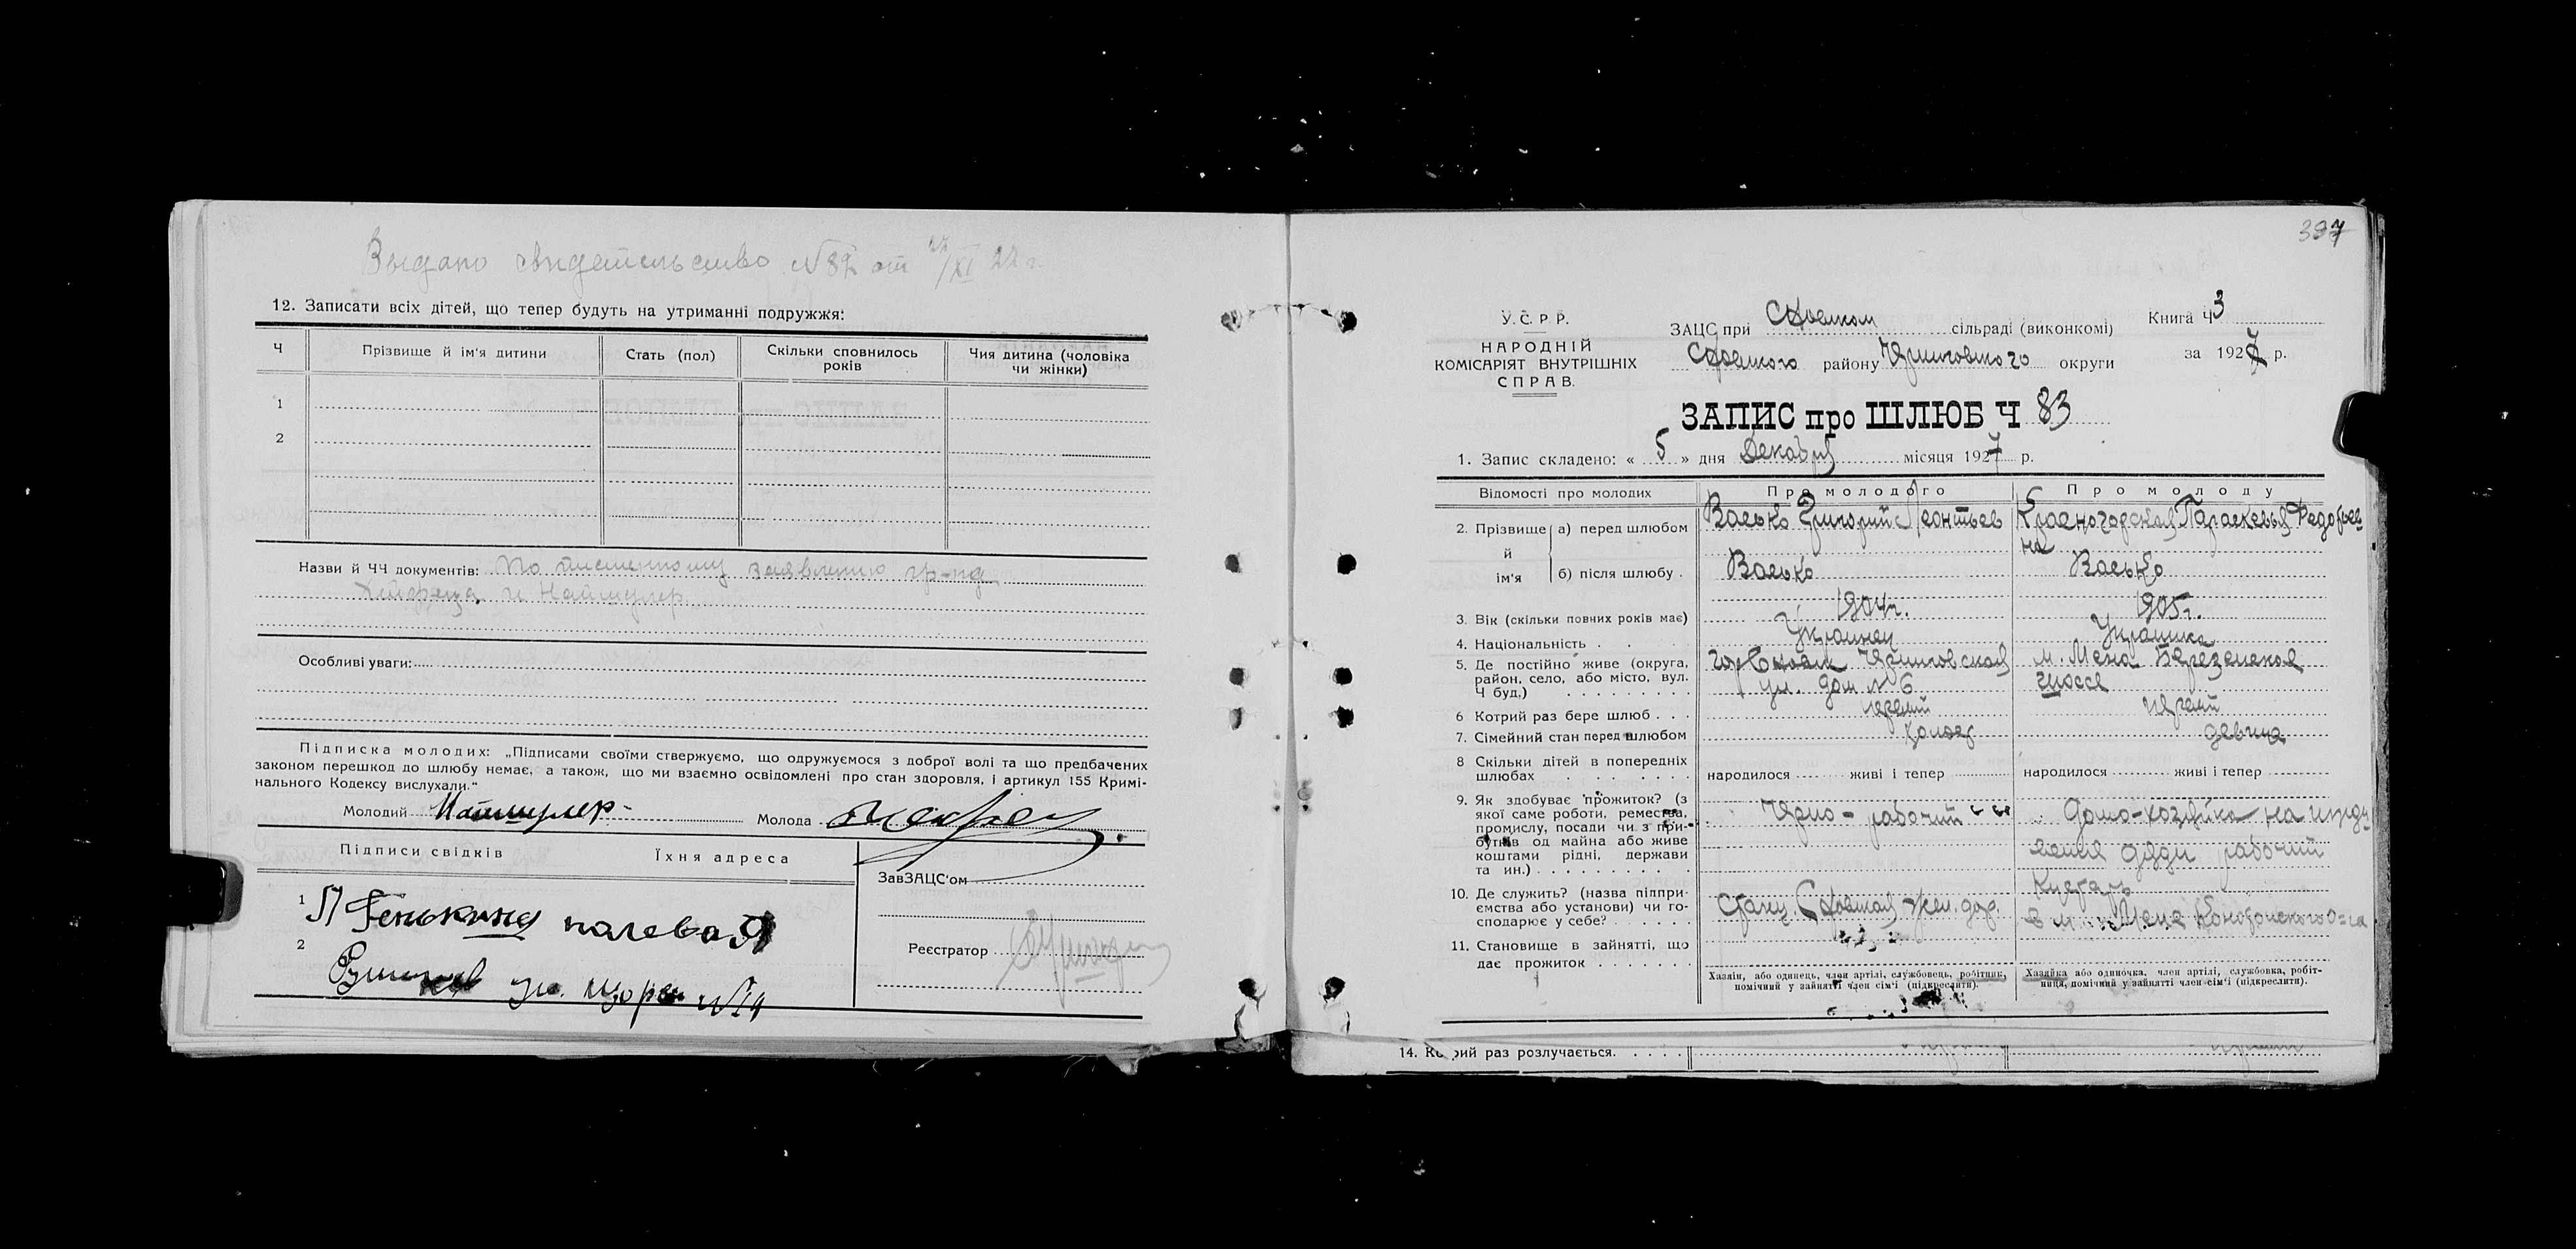 Выдано свидетельство №82 от 27/XI 27 г.
12. Записати всіх дітей, що тепер будуть на утриманні подружжя:
Ч Прізвище й ім'я дитини Стать (пол) Скільки сповнилось років Чия дитина (чоловіка чи жінки)
1
2
Назви й ЧЧ документів: По письменному заявлению гр-нд
и Наймулер
Особливі уваги:
Підписка молодих: „Підписами своїми стверджуємо, що одружуємося з доброї волі та що предбачених
законом перешкод до шлюбу немає, а також, що ми взаємно освідомлені про стан здоровля, і артикул 155 Кримі-
нального Кодексу вислухали."
Молодий Молода
Підписи свідків Їхня адреса
ЗавЗАЦС'ом
1 П Генькина полевая
2 ул. Щорса №14
Реєстратор
397
У. С. Р. Р.
НАРОДНІЙ
КОМІСАРІЯТ ВНУТРІШНІХ
СПРАВ.
ЗАЦС при Сновском сільраді (виконкомі)
Сновского району Черниговского округи
Книга Ч 3
за 1927 р.
ЗАПИС про ШЛЮБ Ч 83
1. Запис складено: « 5 » дня Декабря місяця 1927 р.
Відомості про молодих Про молодого Про молоду
2. Прізвище й ім'я а) перед шлюбом Васько Григорий Леонтьев Красногорская Параскевья Федоровна
б) після шлюбу Васько Васько
3. Вік (скільки повних років має) 1904г. 1905г.
4. Національність Украинец Украинка
5. Де постійно живе (округа, район, село, або місто, вул. Ч буд.) гор Сновск Черниговская ул. дом №6 м. Мена Березенское шоссе
6 Котрий раз бере шлюб первый первый
7. Сімейний стан перед шлюбом холост девица
8 Скільки дітей в попередніх шлюбах народилося живі і тепер народилося живі і тепер
9. Як здобуває прожиток? (з якої саме роботи, ремества, промислу, посади чи з прибутків од майна або живе коштами рідні, держави та ин.) Черно-рабочий Домо-хозяйка на иждивении дяди рабочий
10. Де служить? (назва підприємства або установи) чи господарює у себе? Станц. Сновская жел. дор. в м. Мена Конотопского О-га
11. Становище в зайнятті, що дає прожиток
Хазяін, або одинець, член артілі, службовець, робітник, помічний у зайнятті член сім'ї (підкреслити).
Хазяйка або одиночка, член артілі, службовка, робітниця, помічний у зайнятті член сім'ї (підкреслити).
14. Котрий раз розлучається.